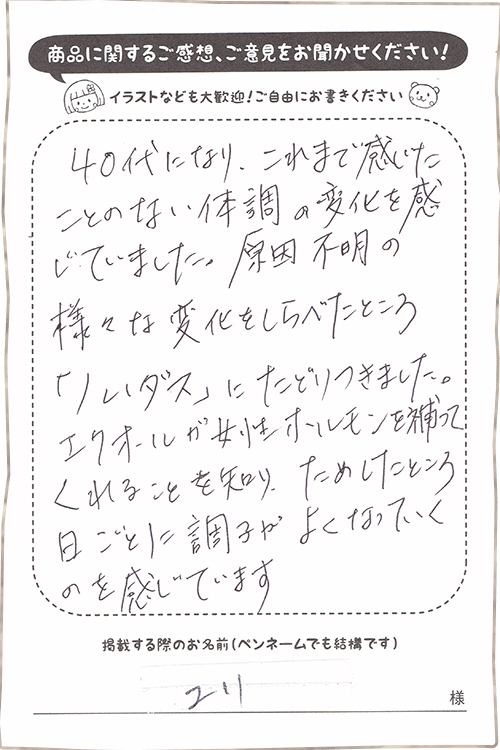 商品に関するご感想、ご意見をお聞かせください!
イラストなども大歓迎!ご自由にお書きください
40代になり、これまで感じた
ことのない体調の変化を感
じていました。原因不明の
様々な変化をしらべたところ
「ノレダス」にたどりつきました。
エクオールが女性ホルモンを補って
くれることを知り、ためしたところ
日ごとに調子がよくなっていく
のを感じています
掲載する際のお名前(ペンネームでも結構です)
ユリ
様